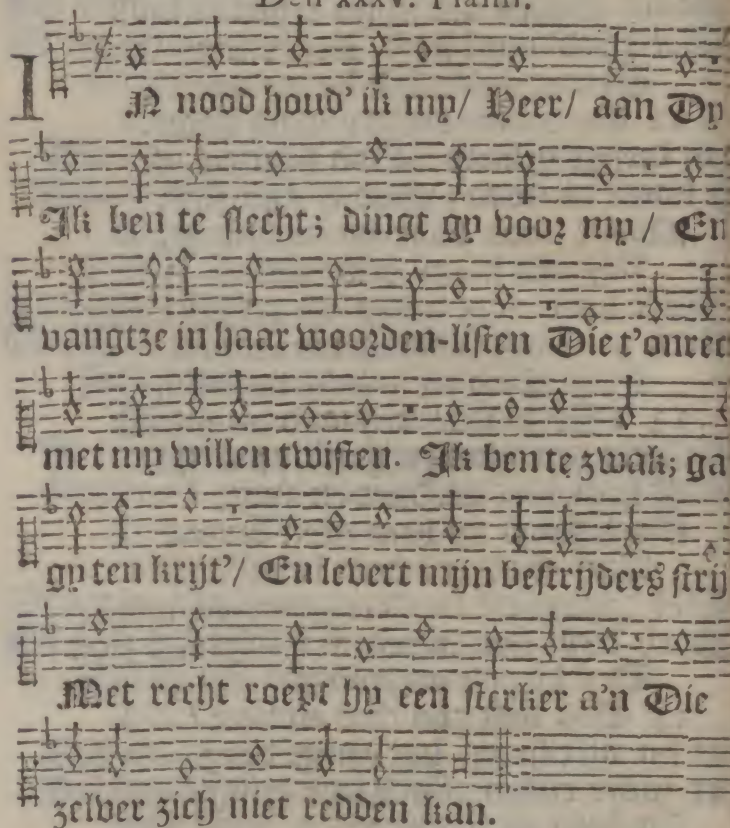 Den XXXV. Psalm.
IN nood houd' ik my/ Heer/ aan Dy
Ik ben te slecht; dingt gy voor my/ En
vangtze in haar woorden-listen Die t'onrec
met my willen twisten. Ik ben te zwak; ga
gy ten krijt'/ En levert mijn bestrijders strij
Met recht roept hy een sterker a'n Die
zelver zich niet redden kan.